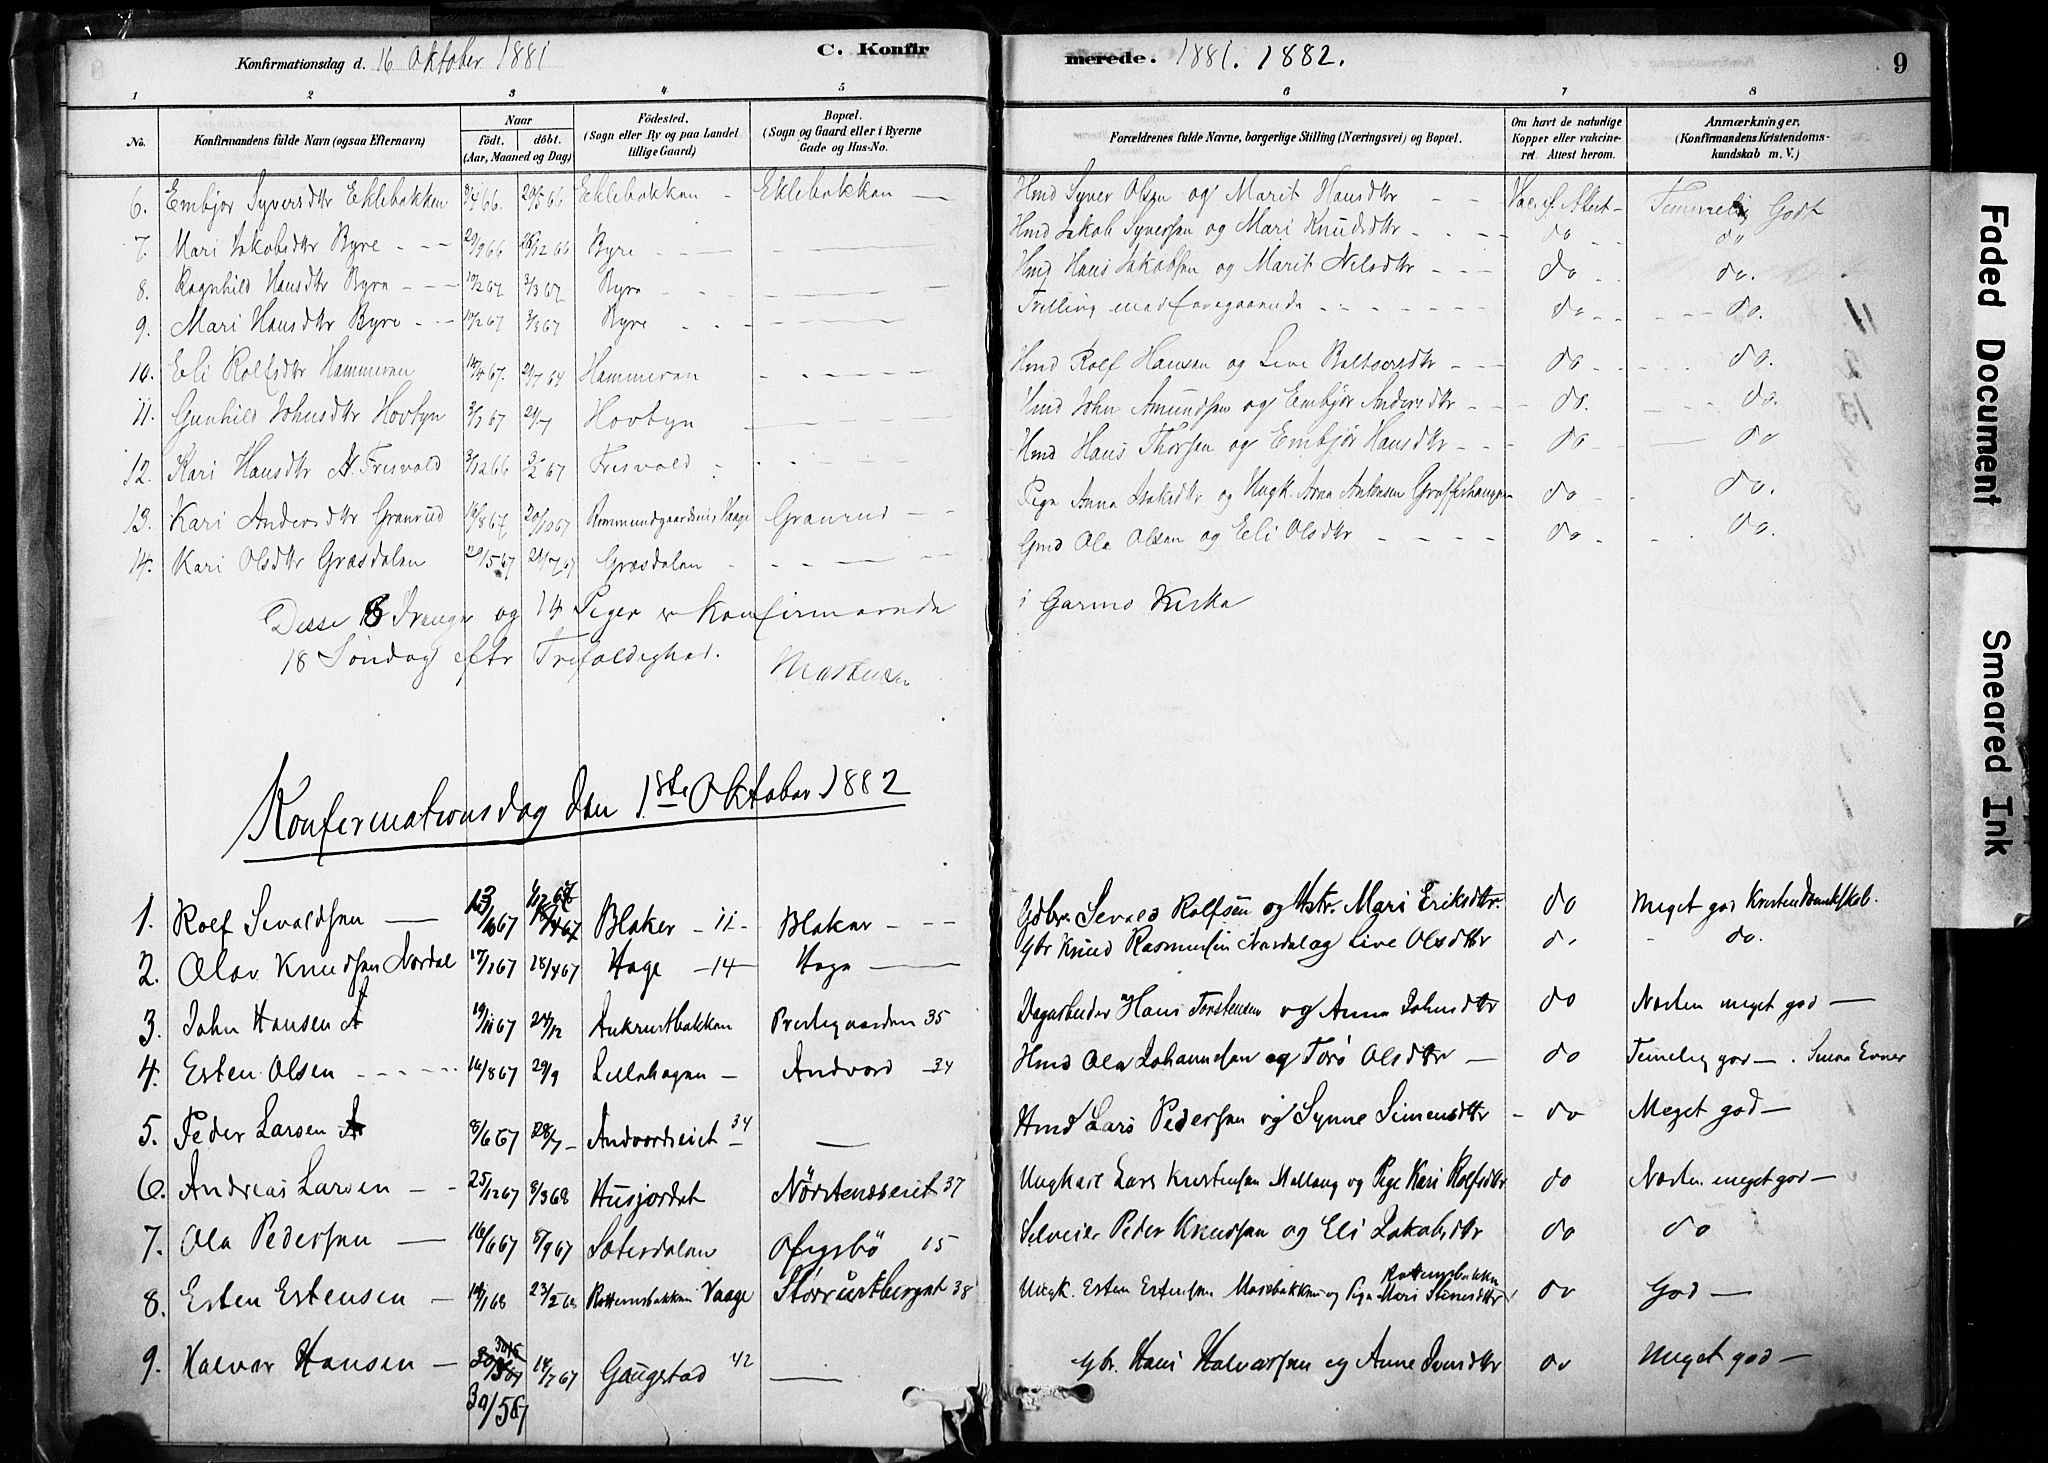 Konfirmationsdag d. 16 Oktober 1881
C. Konfirmerede. 1881. 1882.
9
1 2 3 4 5 6 7 8
No.
Konfirmandens fulde Navn (ogsaa Efternavn)
Naar
født. døbt.
(Aar, Maaned og Dag)
Födested.
(Sogn eller By og paa Landet
tillige Gaard)
Bopæl.
(Sogn og Gaard eller i Byerne
Gade og Hus-No.
Forældrenes fulde Navne, borgerlige Stilling (Næringsvei) og Bopæl.
Om havt de naturlige
Kopper eller vakcine-
ret. Attest herom.
Anmærkninger,
(Konfirmandens Kristendoms-
kundskab m. V.)
6. Embjør Syversdtr Eklebakken 8/4 66. 20/5 66 Eklebakken - Eklebakken — Hmd Syver Olsen og Marit Hansdtr - - Vac. Attest - Temmelig Godt
7. Mari Jakobsdtr Byre - - - 29/9 66 26/12 66 Byre - - — Hmd Jakob Syversen og Mari Knudsdtr - - - do - - do
8. Ragnhild Hansdtr Byre - - - 19/2 67 3/3 67 Byre - - — Hmd Hans Jakobsen og Marit Nilsdtr - - - do - do.
9. Mari Hansdtr Byre - - 19/2 67 3/3 67 Byre - - — Tvilling med foregaaende - - - - do - - - - do.
10. Eli Rolfsdtr Hammeren 14/4 67. Hammeren - - - Hmd Rolf Hansen og Live Baltsersdtr - - - do - - - do.
11. Gunhild Johnsdtr Hovbyn 3/3 67 Hovbyn - - - Hmd John Amundsen og Embjør Andersdtr - - - do. - - do.
12. Kari Hansdtr N. Frisvold 3/12 66 3/2 67 Frisvold - - - Hmd Hans Thorsen og Embjør Hansdtr - - do - — do
13. Kari Andersdtr Granrud 16/8 67 20/10 67 Rommundgaardseiet Vaage Granrud - - Pige Anna Isaksdtr og Ungk. Anton Graffershaugen do - - do.
14. Kari Olsdtr Græsdalen 29/5 67 Græsdalen - - - Gmd Ola Olsen og Eli Olsdtr - - - - do - - do.
Desse 8 Drenger og 14 Piger er Konfirmerede i Garmo Kirke
18 Søndag eftr Trefoldighed.
Konfirmationsdag den 1ste Oktober 1882
1. Rolf Sevaldsen — Blaker - 11 - Blaker - - - Gdbr. Sevald Rolfsen og Hstr. Mari Eriksdtr. do Meget god Kristendomskskab.
2. Olav Knudsen Nordal 17/1 67 18/4 67 Hage - 14 - Hage — Gbr Knud Rasmussen Nordal og Live Olsdtr do - do.
3. John Hansen 19/11 67 24/12 Aukrustbakken Prestegaarden 35 Dagarbeider Hans Torstensen og Anne Johnsdtr do Næsten meget god —
4. Esten Olsen - - - - - 16/8 67 29/9 Lillehagen - Andvord - 34 Hmd Ola Johannesen og Torø Olsdtr — do Temelig god — . Smaa Evner
5. Peder Larsen 8/6 67 28/7 - Andvordseiet 34 — Hmd Lars Pedersen og Synne Simensdtr - do Meget god —
6. Andreas Larsen - - 25/12 67 8/3 68 Husjordet Nörstensseiet 37 Ungkarl Lars Kristensen Mellaug og Pige Kari Rolfsdtr do Næsten meget god —
7. Ola Pedersen — 16/6 67 8/9 67 Sæterdalen Ofigsbö 15 Selveier Peder Knudsen og Eli Jakobsdtr do do
8. Esten Estensen — 14/1 68 23/2 68 Rottemsbakken Vaage Störrustberget 38 Ungk. Esten Estensen Mosebakken og Pige Mari Stenersdtr Rottemsbakken do God —
9. Halvor Hansen — 30/5 67 14/7 67 Gaugstad 42 — Gbr. Hans Halvorsen og Anne Iversdtr do Meget god —
Faded Document
Smeared Ink